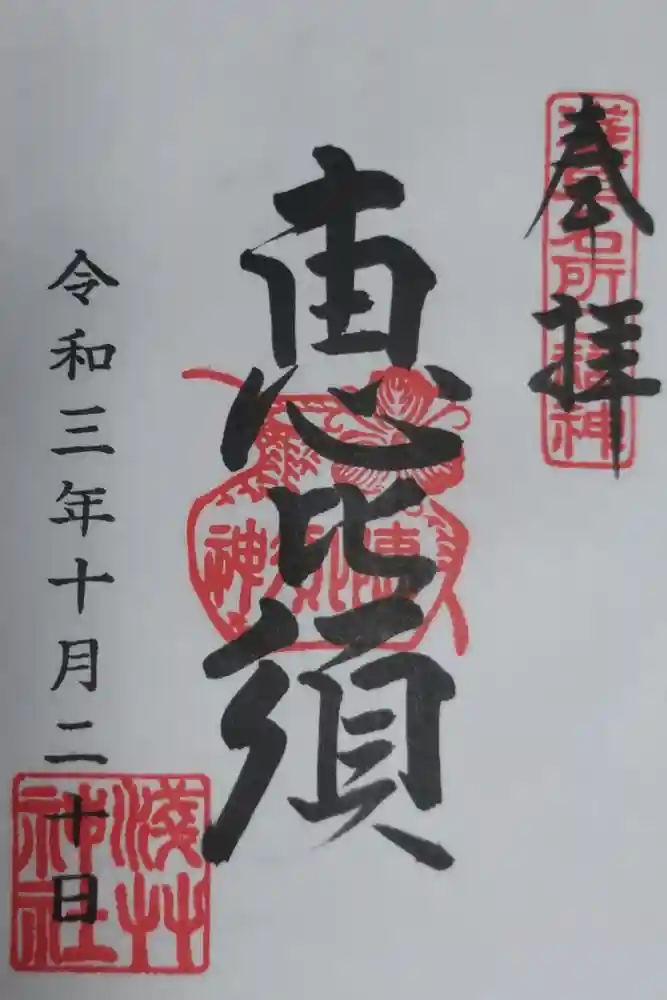 奉拝
名所
福神
恵比須
令和三年十月二十日
淺草
神社